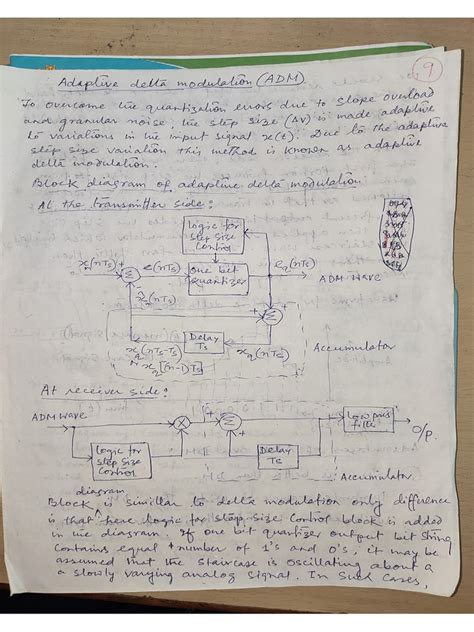 9
Adaptive delta modulation (ADM)
To overcome the quantization errors due to slope overload
and granular noise, the step size (ΔV) is made adaptive
to variations in the input signal x(t). Due to the adaptive
step size variation this method is known as adaptive
delta modulation.
Block diagram of adaptive delta modulation.
At the transmitter side:
Logic for
Step Size
Control
x(nTs)
Σ
e(nTs)
One bit
Quantizer
eq(nTs)
ADM WAVE
Σ
Delay
Ts
x̂(nTs)
xq(nTs-Ts)
xq[(n-1)Ts]
xq(nTs)
Accumulator
At receiver side:
ADM WAVE
Logic for
Step Size
Control
X
+
Σ
+
Delay
Ts
Low pass
filter
O/P.
Accumulator
diagram
Block is similar to delta modulation only difference
is that here Logic for Step Size Control block is added
in the diagram. If one bit quantizer output bit string
Contains equal number of 1's and 0's, it may be
assumed that the Staircase is oscillating about a
a slowly varying analog Signal. In Such Cases,